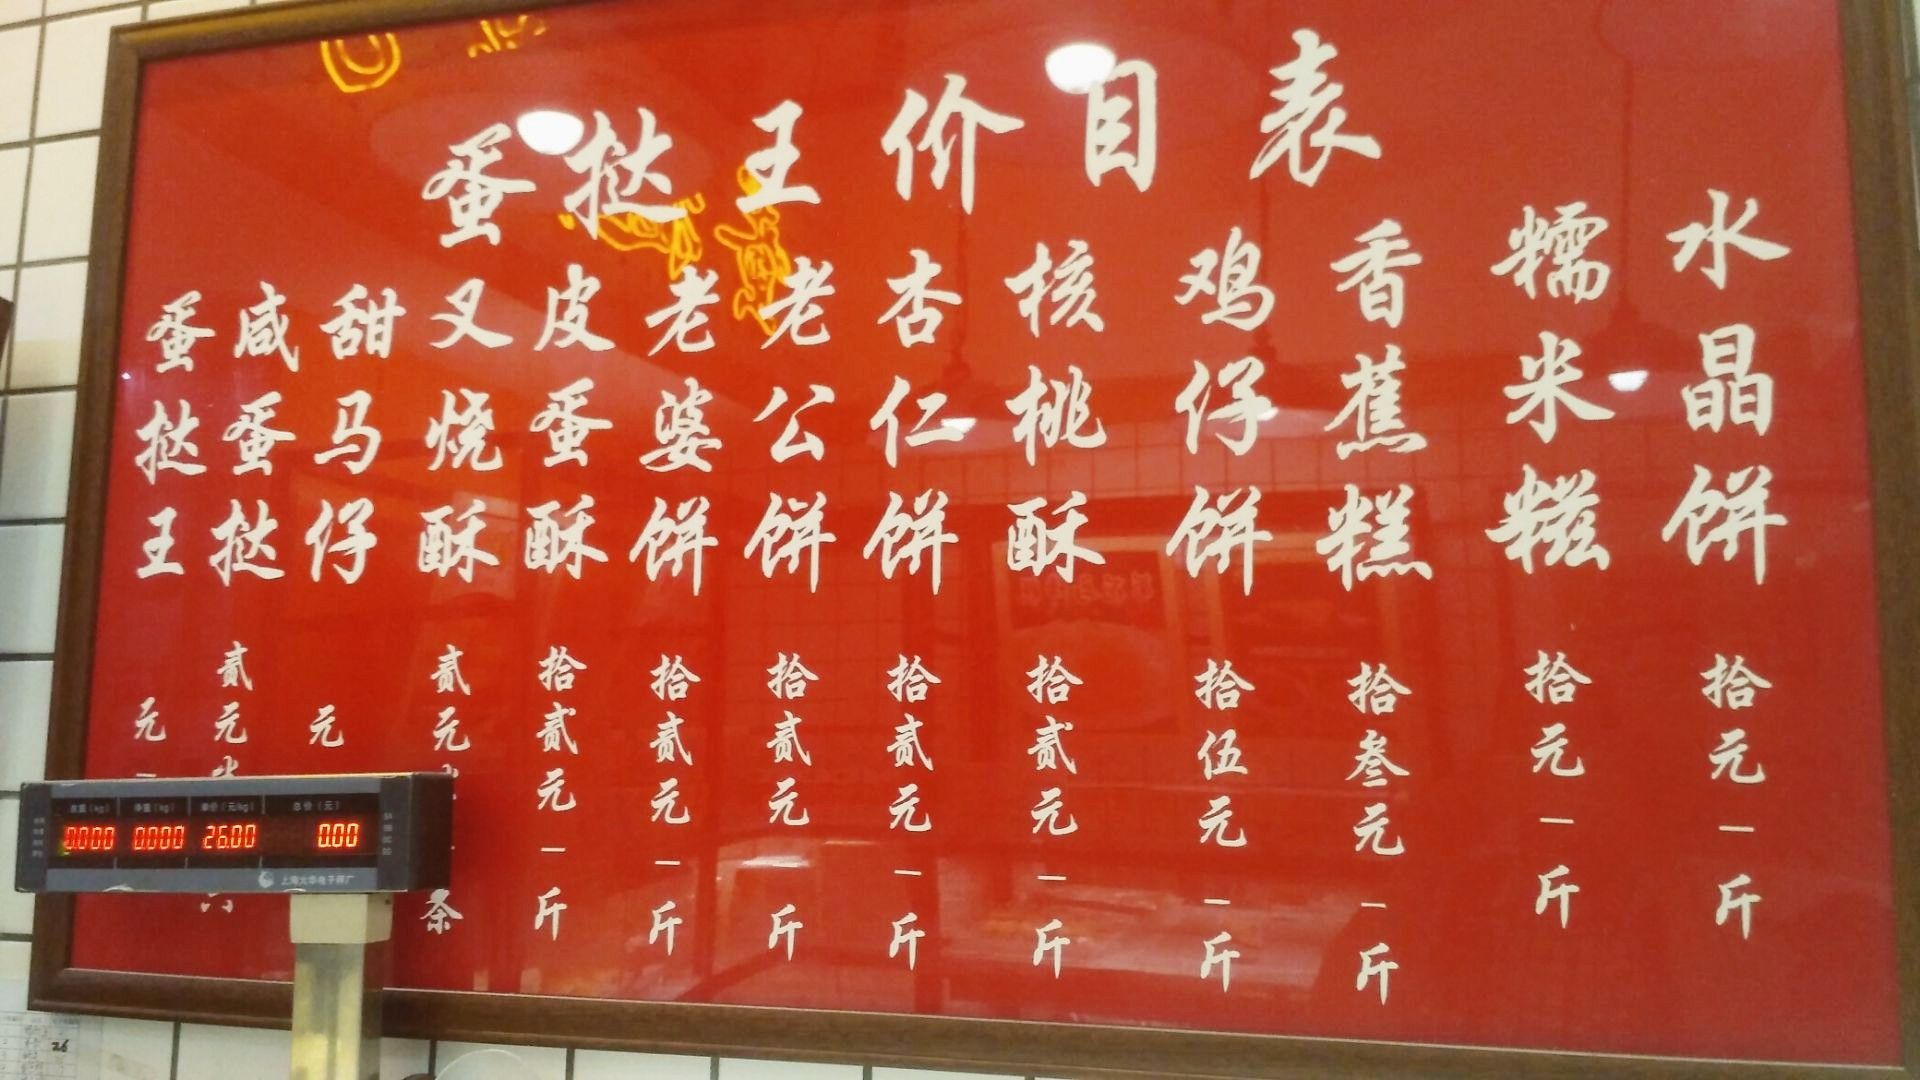 蛋挞王价目表
水晶饼 拾元一斤
糯米糍 拾元一斤
香蕉糕 拾叁元一斤
鸡仔饼 拾伍元一斤
核桃酥 拾贰元一斤
杏仁饼 拾贰元一斤
老公饼 拾贰元一斤
老婆饼 拾贰元一斤
皮蛋酥 拾贰元一斤
叉烧酥 贰元 条
甜马仔 元
咸蛋挞 贰元
蛋挞王 元一
净重(kg) 单价(元/kg) 总价(元)
0.000 0.000 26.00 0.00
26